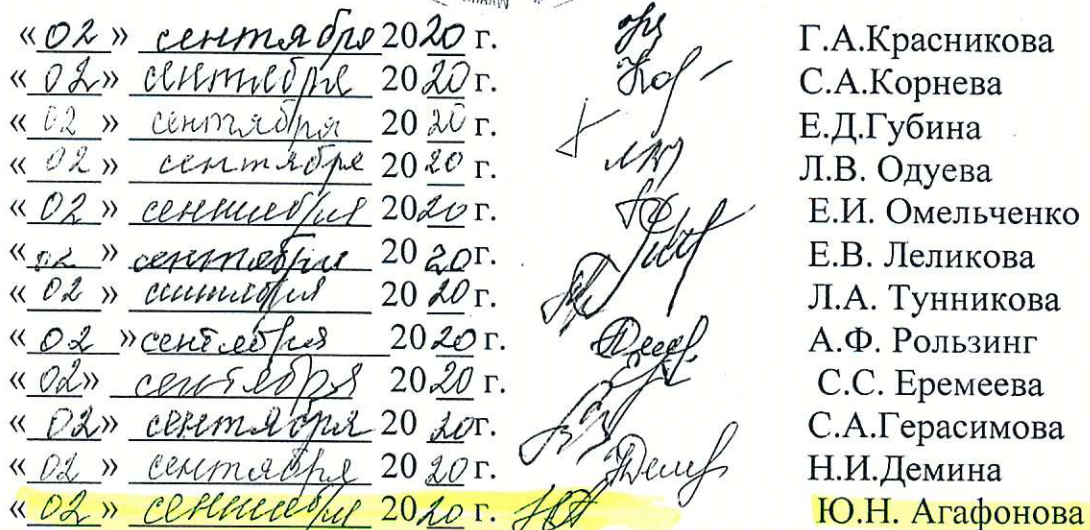 «02» сентября 2020 г. Г.А.Красникова
«02» сентября 2020 г. С.А.Корнева
«02» сентября 2020 г. Е.Д.Губина
«02» сентября 2020 г. Л.В. Одуева
«02» сентября 2020 г. Е.И. Омельченко
«02» сентября 2020г. Е.В. Леликова
«02» сентября 2020 г. Л.А. Тунникова
«02» сентября 2020 г. А.Ф. Рользинг
«02» сентября 2020 г. С.С. Еремеева
«02» сентября 2020г. С.А.Герасимова
«02» сентября 2020 г. Н.И.Демина
«02» сентября 2020 г. Ю.Н. Агафонова